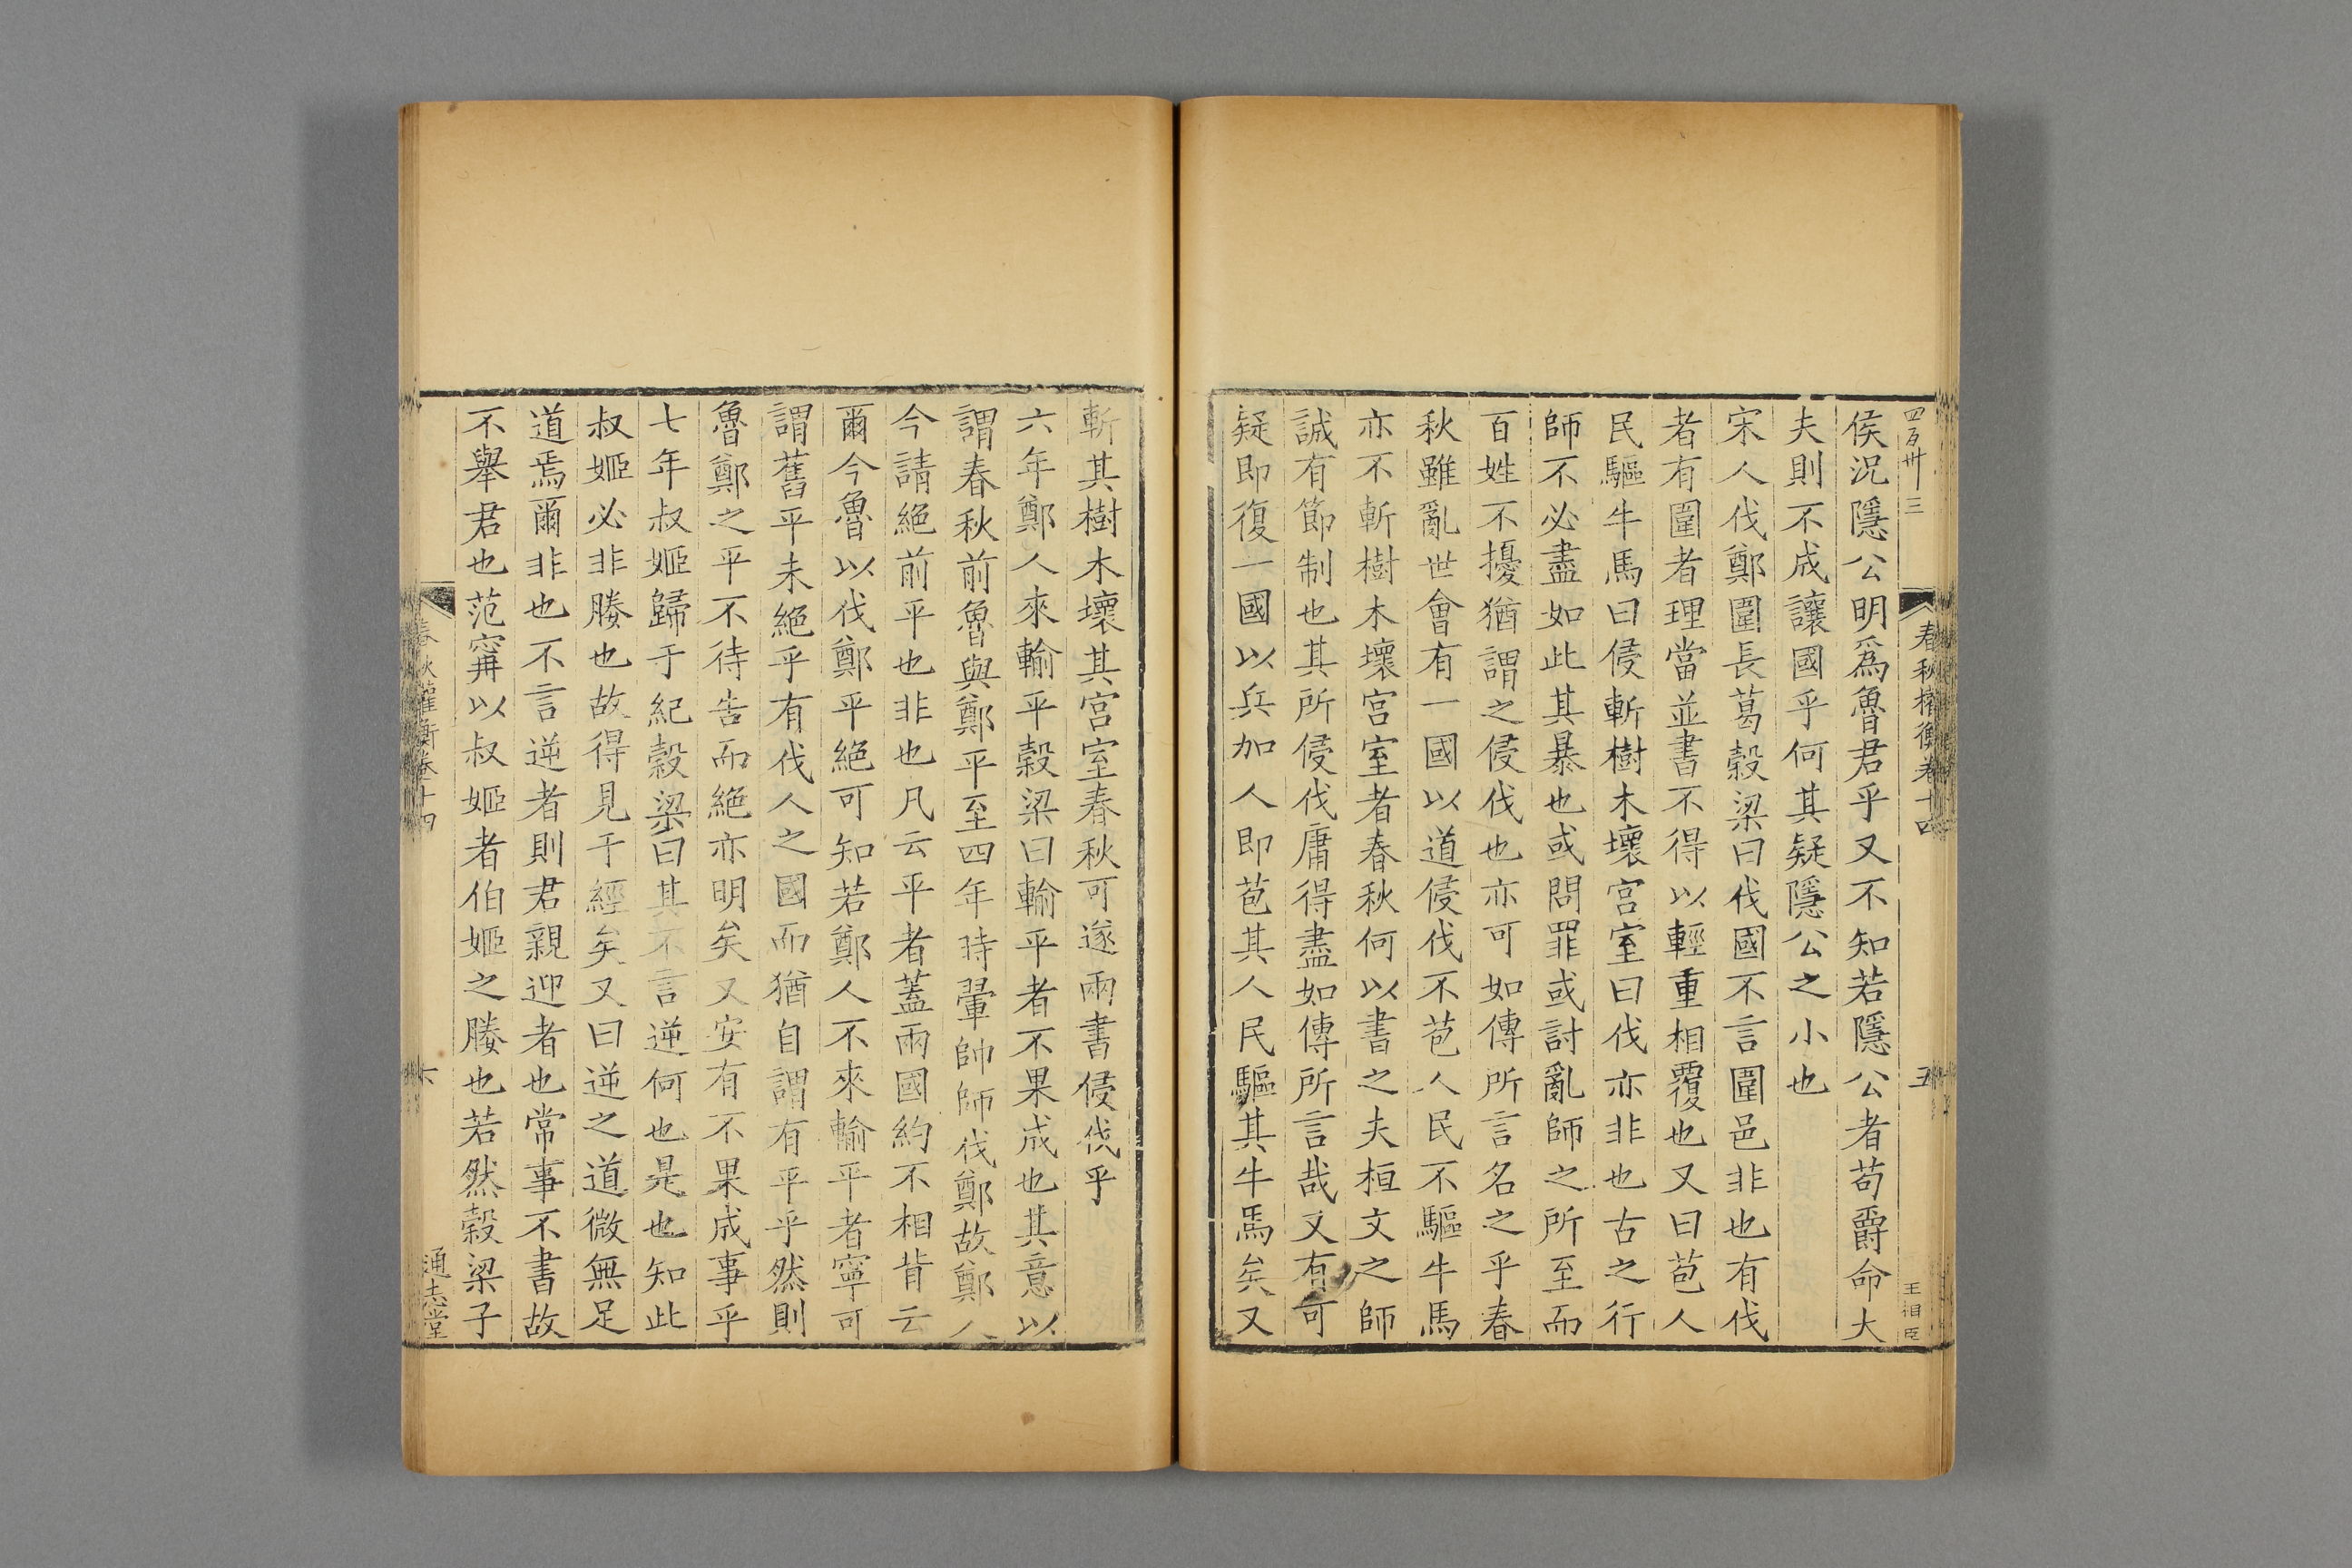 四百卅三
春秋權衡卷十四
五
王相臣
侯況隱公明爲魯君乎又不知若隱公者苟爵命大
夫則不成讓國乎何其疑隱公之小也
宋人伐鄭圍長葛穀梁曰伐國不言圍邑非也有伐
者有圍者理當並書不得以輕重相覆也又曰苞人
民驅牛馬曰侵斬樹木壞宮室曰伐亦非也古之行
師不必盡如此其暴也或問罪或討亂師之所至而
百姓不擾猶謂之侵伐也亦可如傳所言名之乎春
秋雖亂世會有一國以道侵伐不苞人民不驅牛馬
亦不斬樹木壞宮室者春秋何以書之夫桓文之師
誠有節制也其所侵伐庸得盡如傳所言哉又有可
疑即復一國以兵加人即苞其人民驅其牛馬矣又
斬其樹木壞其宮室春秋可遂兩書侵伐乎
六年鄭人來輸平穀梁曰輸平者不果成也其意以
謂春秋前魯與鄭平至四年時翬帥師伐鄭故鄭人
今請絕前平也非也凡云平者蓋兩國約不相背云
爾今魯以伐鄭平絕可知若鄭人不來輸平者寧可
謂舊平未絕乎有伐人之國而猶自謂有平乎然則
魯鄭之平不待告而絕亦明矣又安有不果成事乎
七年叔姬歸于紀穀梁曰其不言逆何也是也知此
叔姬必非媵也故得見于經矣又曰逆之道微無足
道焉爾非也不言逆者則君親迎者也常事不書故
不舉君也范甯以叔姬者伯姬之媵也若然穀梁子
春秋權衡卷十四
六
通志堂